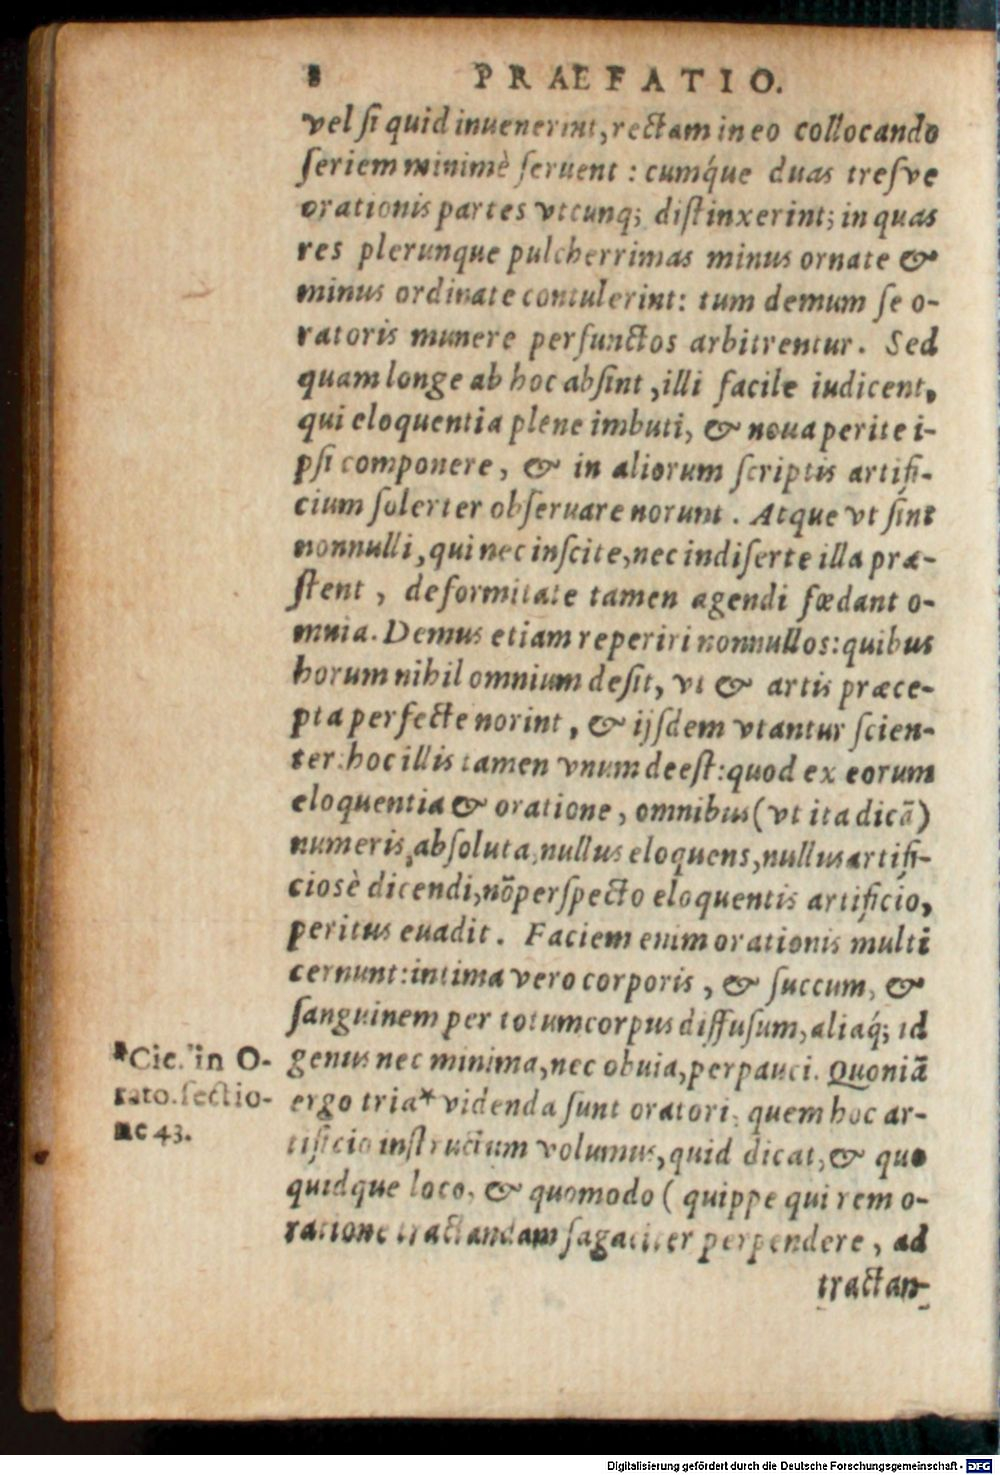 8 PRAEFATIO.
vel ſi quid inuenerint, rectam in eo collocando
ſeriem minimè ſeruent : cumq́ue duas treſve
orationis partes vtcunq; diſtinxerint; in quas
res plerunque pulcherrimas minus ornate &
minus ordinate contulerint: tum demum ſe o-
ratoris munere perfunctos arbitrentur. Sed
quam longe ab hoc abſint, illi facile iudicent,
qui eloquentia plene imbuti, & noua perite i-
pſi componere, & in aliorum ſcriptis artifi-
cium ſolerter obſeruare norunt. Atque vt ſint
nonnulli, qui nec inſcite, nec indiſerte illa præ-
ſtent, deformitate tamen agendi fœdant o-
mnia. Demus etiam reperiri nonnullos: quibus
horum nihil omnium deſit, vt & artis præce-
pta perfecte norint, & ijſdem vtantur ſcien-
ter: hoc illis tamen vnum deeſt: quod ex eorum
eloquentia & oratione, omnibus (vt ita dicā)
numeris abſoluta, nullus eloquens, nullus artifi-
ciosè dicendi, nō perſpecto eloquentis artificio,
peritus euadit. Faciem enim orationis multi
cernunt: intima vero corporis, & ſuccum, &
ſanguinem per totum corpus diffuſum, aliaq́; id
genus nec minima, nec obuia, perpauci. Quoniā
ergo tria* videnda ſunt oratori, quem hoc ar-
tificio inſtructum volumus, quid dicat, & quo
quidque loco, & quomodo (quippe qui rem o-
ratione tractandam ſagaciter perpendere, ad
tractan-
*Cic. in O-
rato. ſectio-
ne 43.
Digitalisierung gefördert durch die Deutsche Forschungsgemeinschaft - DFG